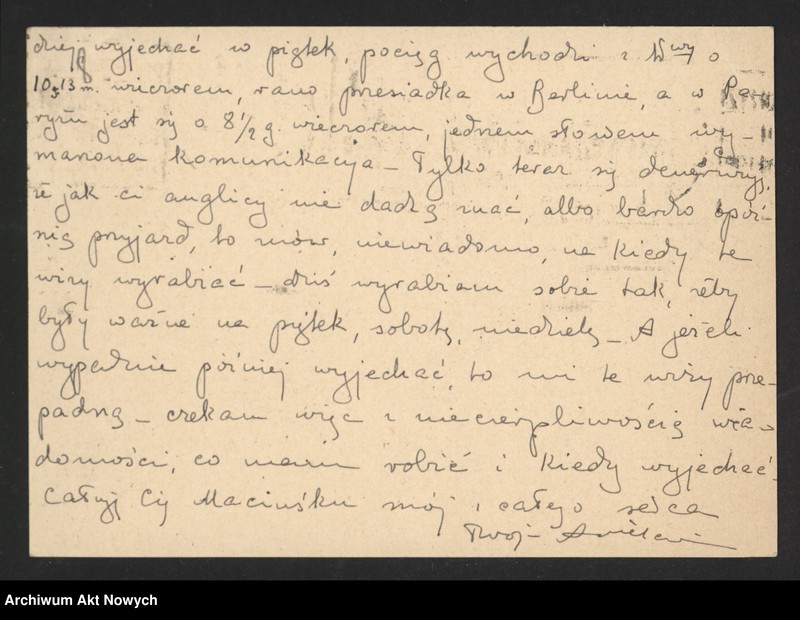 dziej wyjechać w piątek, pociąg wychodzi z W-wy o
10 g 13 m. wieczorem, rano przesiadka w Berlinie, a w Pa-
ryżu jest się o 8 1/2 g. wieczorem, jednem słowem wy-
marzona komunikacja – Tylko teraz się denerwuję,
że jak ci anglicy nie dadzą znać, albo bardzo opóź-
nią przyjazd, to znów, niewiadomo, na kiedy te
wizy wyrabiać – dziś wyrabiam sobie tak, żeby
były ważne na piątek, sobotę, niedzielę – A jeżeli
wypadnie później wyjechać, to mi te wizy prze-
padną – czekam więc z niecierpliwością wia-
domości, co mam robić i kiedy wyjechać.
Całuję Cię Maciuśku mój z całego serca
Twoja
Archiwum Akt Nowych